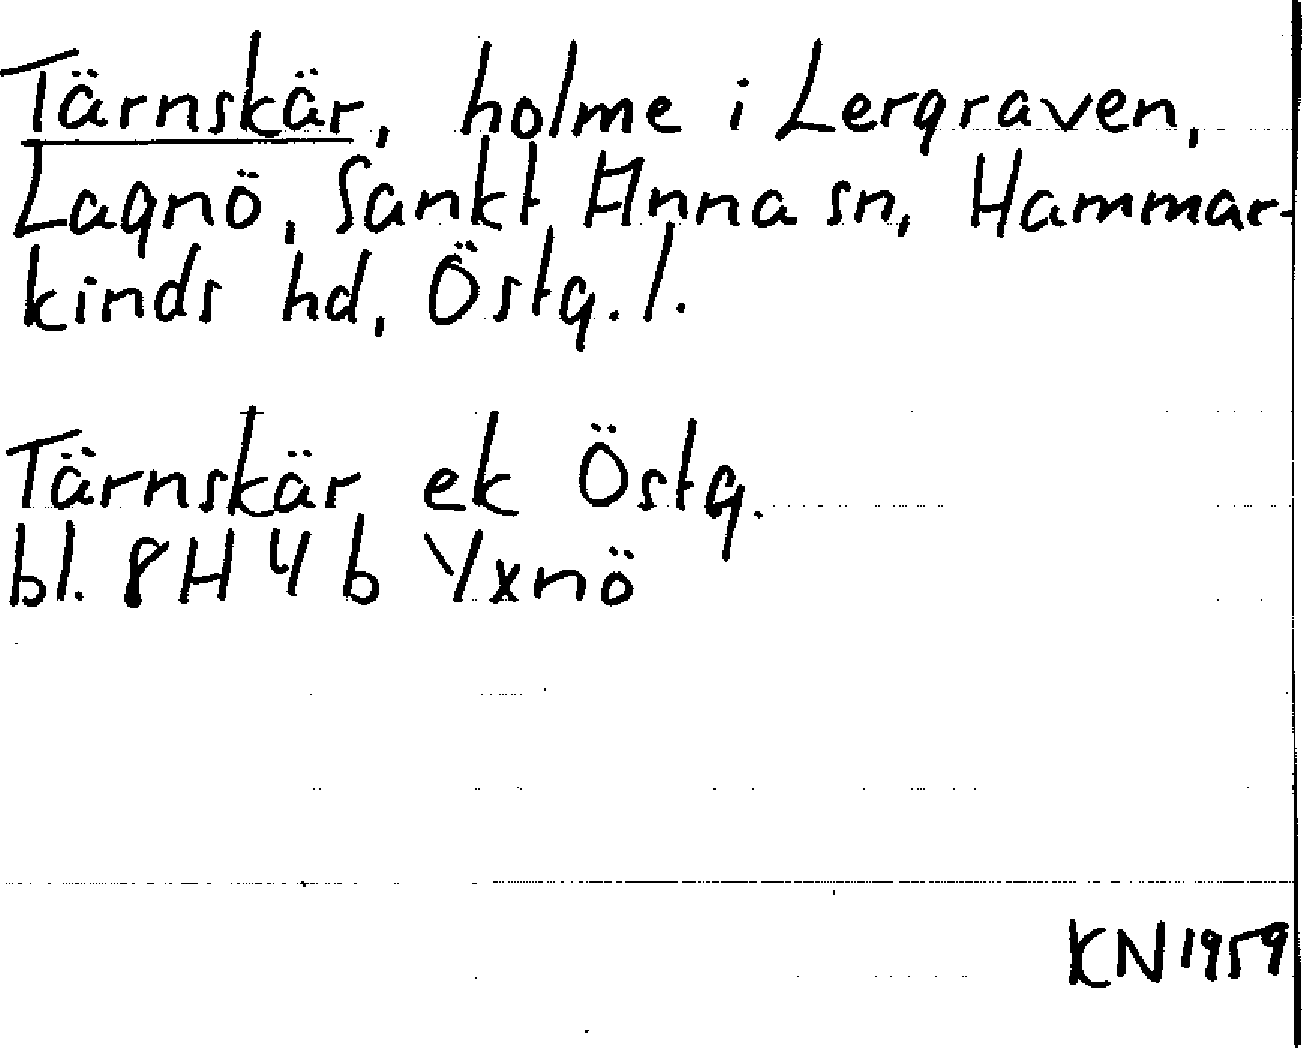 Tärnskär, holme i Lergraven,
Lagnö, Sankt Anna sn, Hammar-
kinds hd, Östg. l.
Tärnskär ek Östg.
bl. 8H 4 b Yxnö
KN 1959